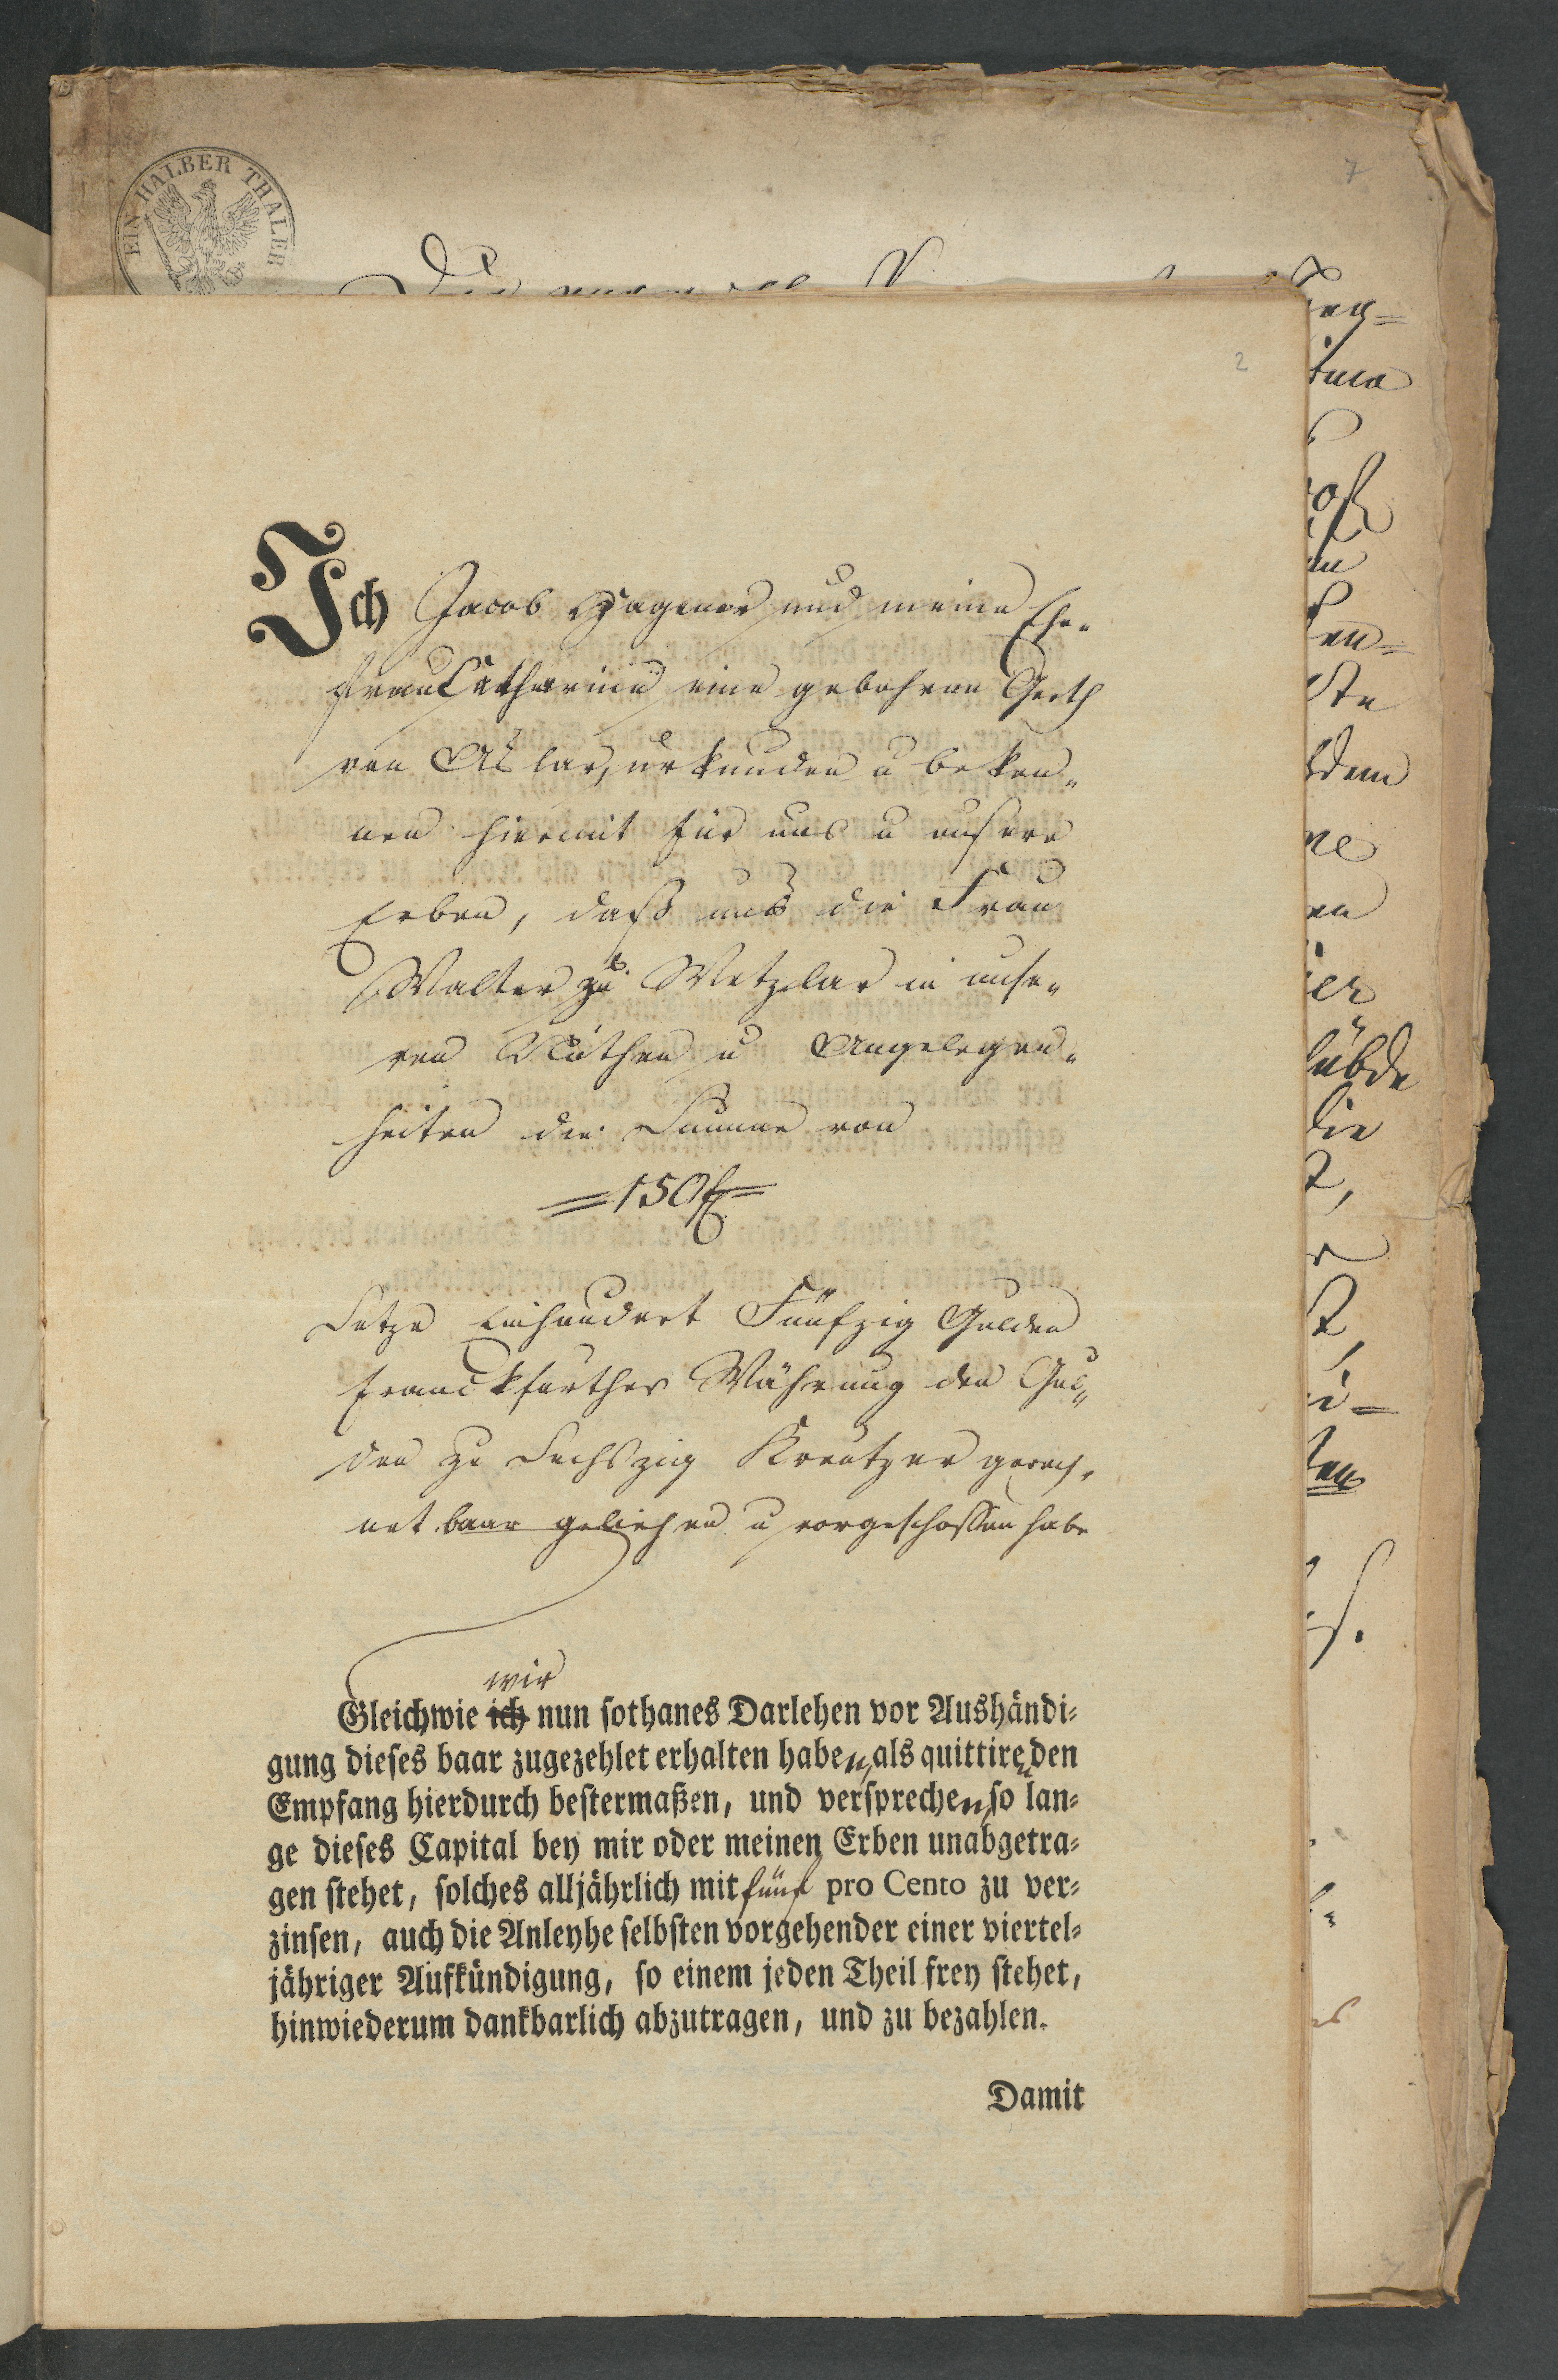 EIN HALBER THALER
7
2
Ich Jacob Wagener und meine Ehe-
frau Catharine eine gebohrne Gerth
von Aslar, urkunden u beken-
nen hiermit für uns u unsere
Erben, daß uns die Frau
Walter zu Wetzlar in unse-
ren Nöthen u Angelegen-
heiten die Summe von
=150 f=
Setze Einhundert Fünfzig Gulden
Franckfurther Währung den Gul-
den zu Sechszig Kreutzer gerech-
net baar geliehen u vorgeschossen habe
wir
Gleichwie ich nun sothanes Darlehen vor Aushändi-
gung dieses baar zugezehlet erhalten haben, als quittiren den
Empfang hierdurch bestermaßen, und versprechen, so lan-
ge dieses Capital bey mir oder meinen Erben unabgetra-
gen stehet, solches alljährlich mit fünf pro Cento zu ver-
zinsen, auch die Anleyhe selbsten vorgehender einer viertel-
jähriger Aufkündigung, so einem jeden Theil frey stehet,
hinwiederum dankbarlich abzutragen, und zu bezahlen.
Damit